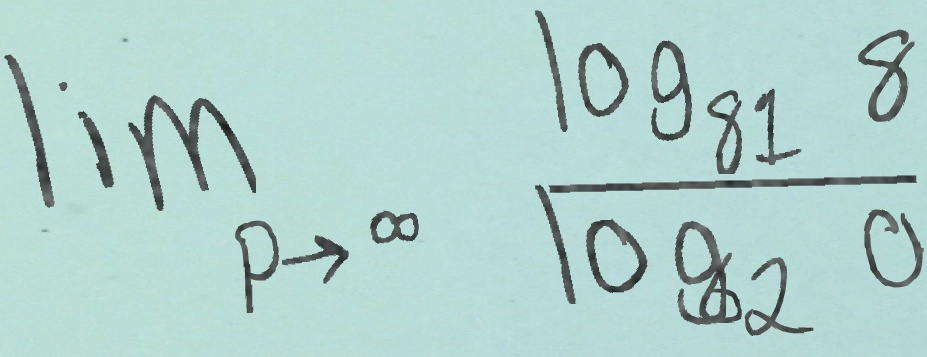 lim p→∞ log₈₁ 8 / log₈₂ 0